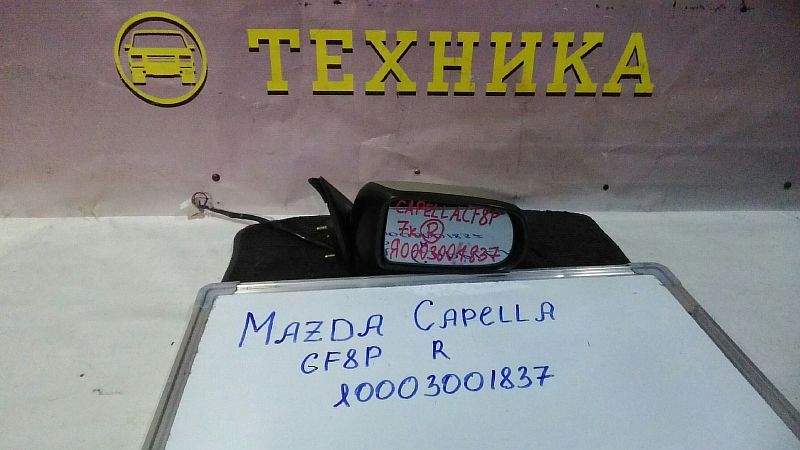 ТЕХНИКА
CAPELLA GF8P
7к R
Я0003001837
MAZDA CAPELLA
GF8P R
Я0003001837